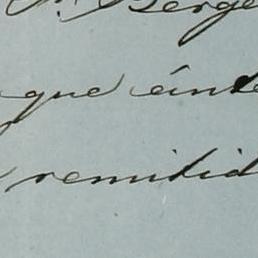 Berge
que ínte
remitid